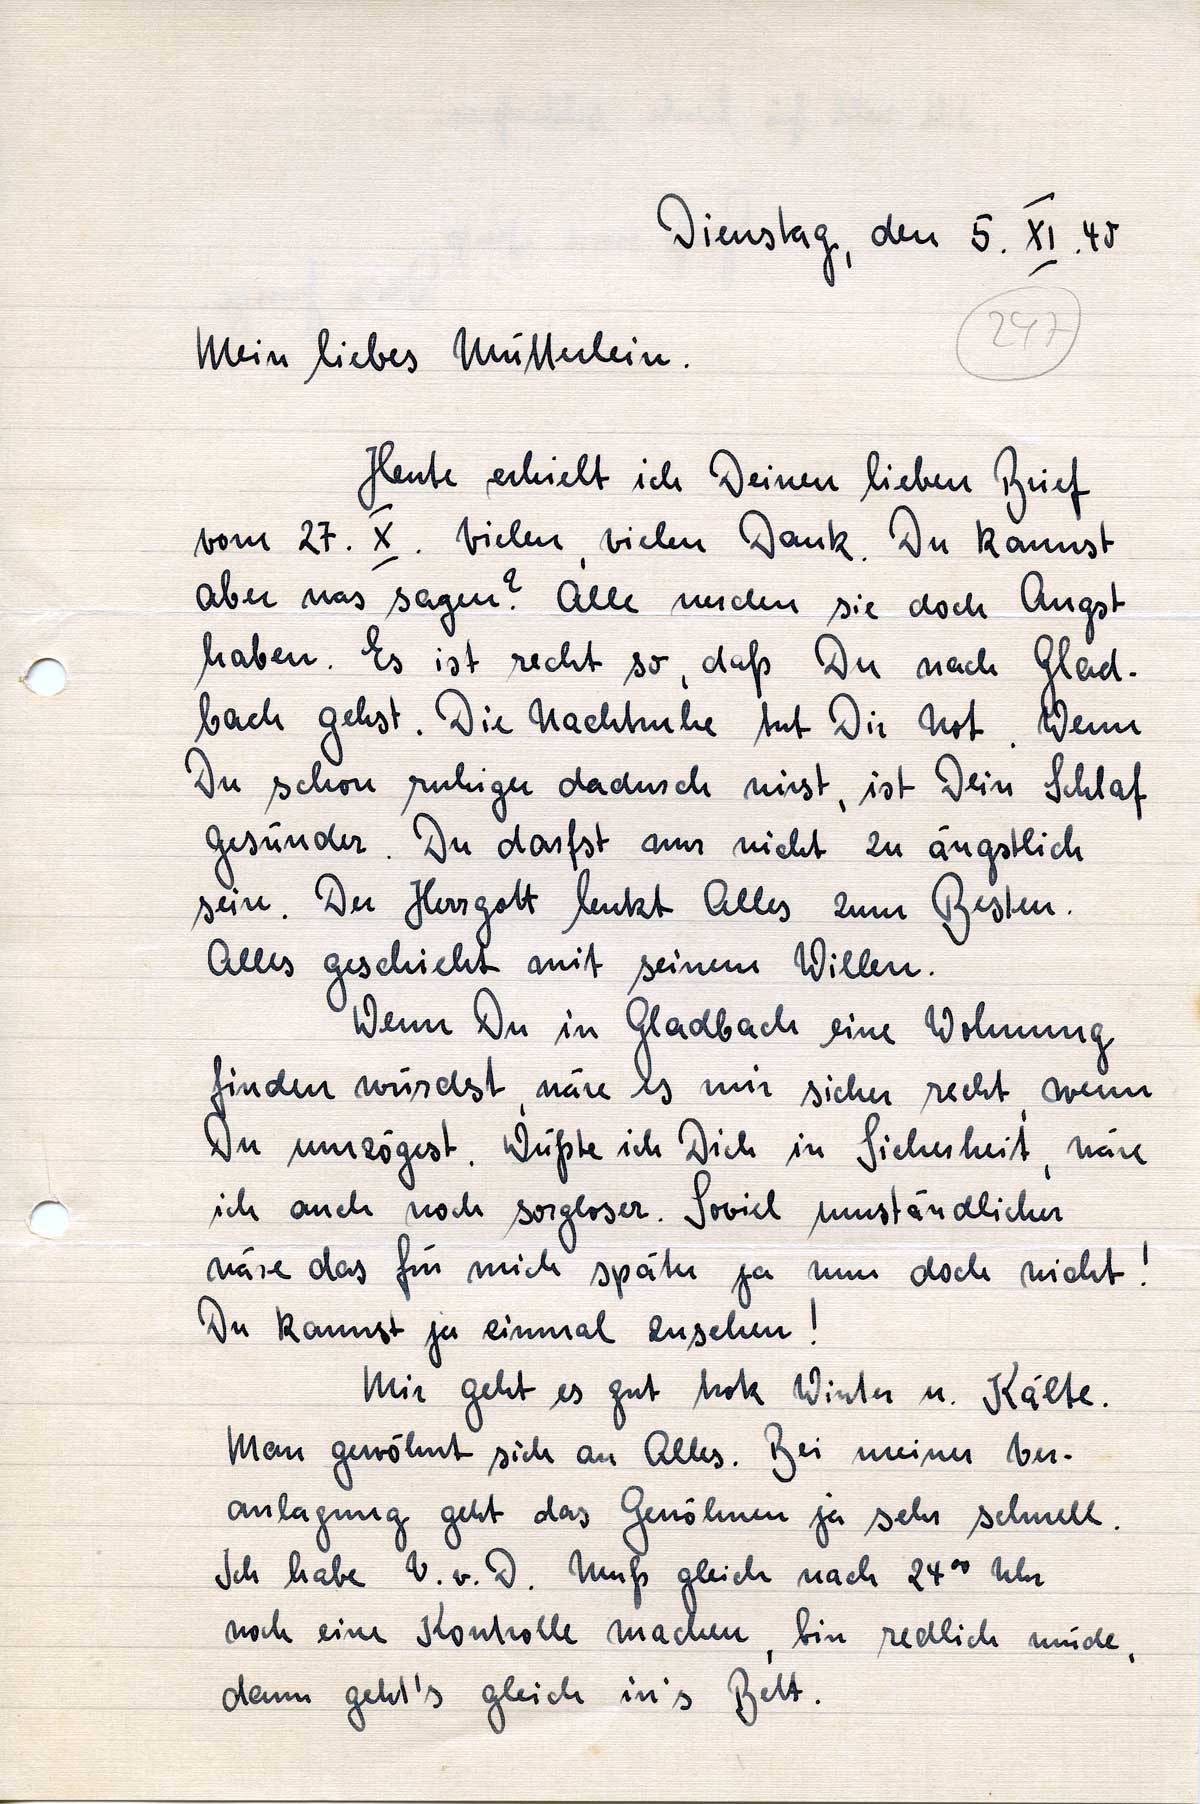 Dienstag, den 5. XI. 40
247
Mein liebes Mütterlein.
Heute erhielt ich Deinen lieben Brief
vom 27. X. Vielen, vielen Dank. Du kannst
aber was sagen? Alle werden sie doch Angst
haben. Es ist recht so, daß Du nach Glad-
bach gehst. Die Nachtruhe tut Dir Not. Wenn
Du schon ruhiger dadurch wirst, ist Dein Schlaf
gesünder. Du darfst nur nicht zu ängstlich
sein. Der Herrgott lenkt Alles zum Besten.
Alles geschieht mit seinem Willen.
Wenn Du in Gladbach eine Wohnung
finden würdest, wäre es mir sicher recht, wenn
Du umzögest. Wüßte ich Dich in Sicherheit, wäre
ich auch noch sorgloser. Soviel umständlicher
wäre das für mich später ja nun doch nicht!
Du kannst ja einmal zusehen!
Mir geht es gut trotz Winter u. Kälte.
Man gewöhnt sich an Alles. Bei meiner Ver-
anlagung geht das Gewöhnen ja sehr schnell.
Ich habe U. v. D. Muß gleich nach 24⁰⁰ Uhr
noch eine Kontrolle machen, bin redlich müde,
dann geht's gleich in's Bett.